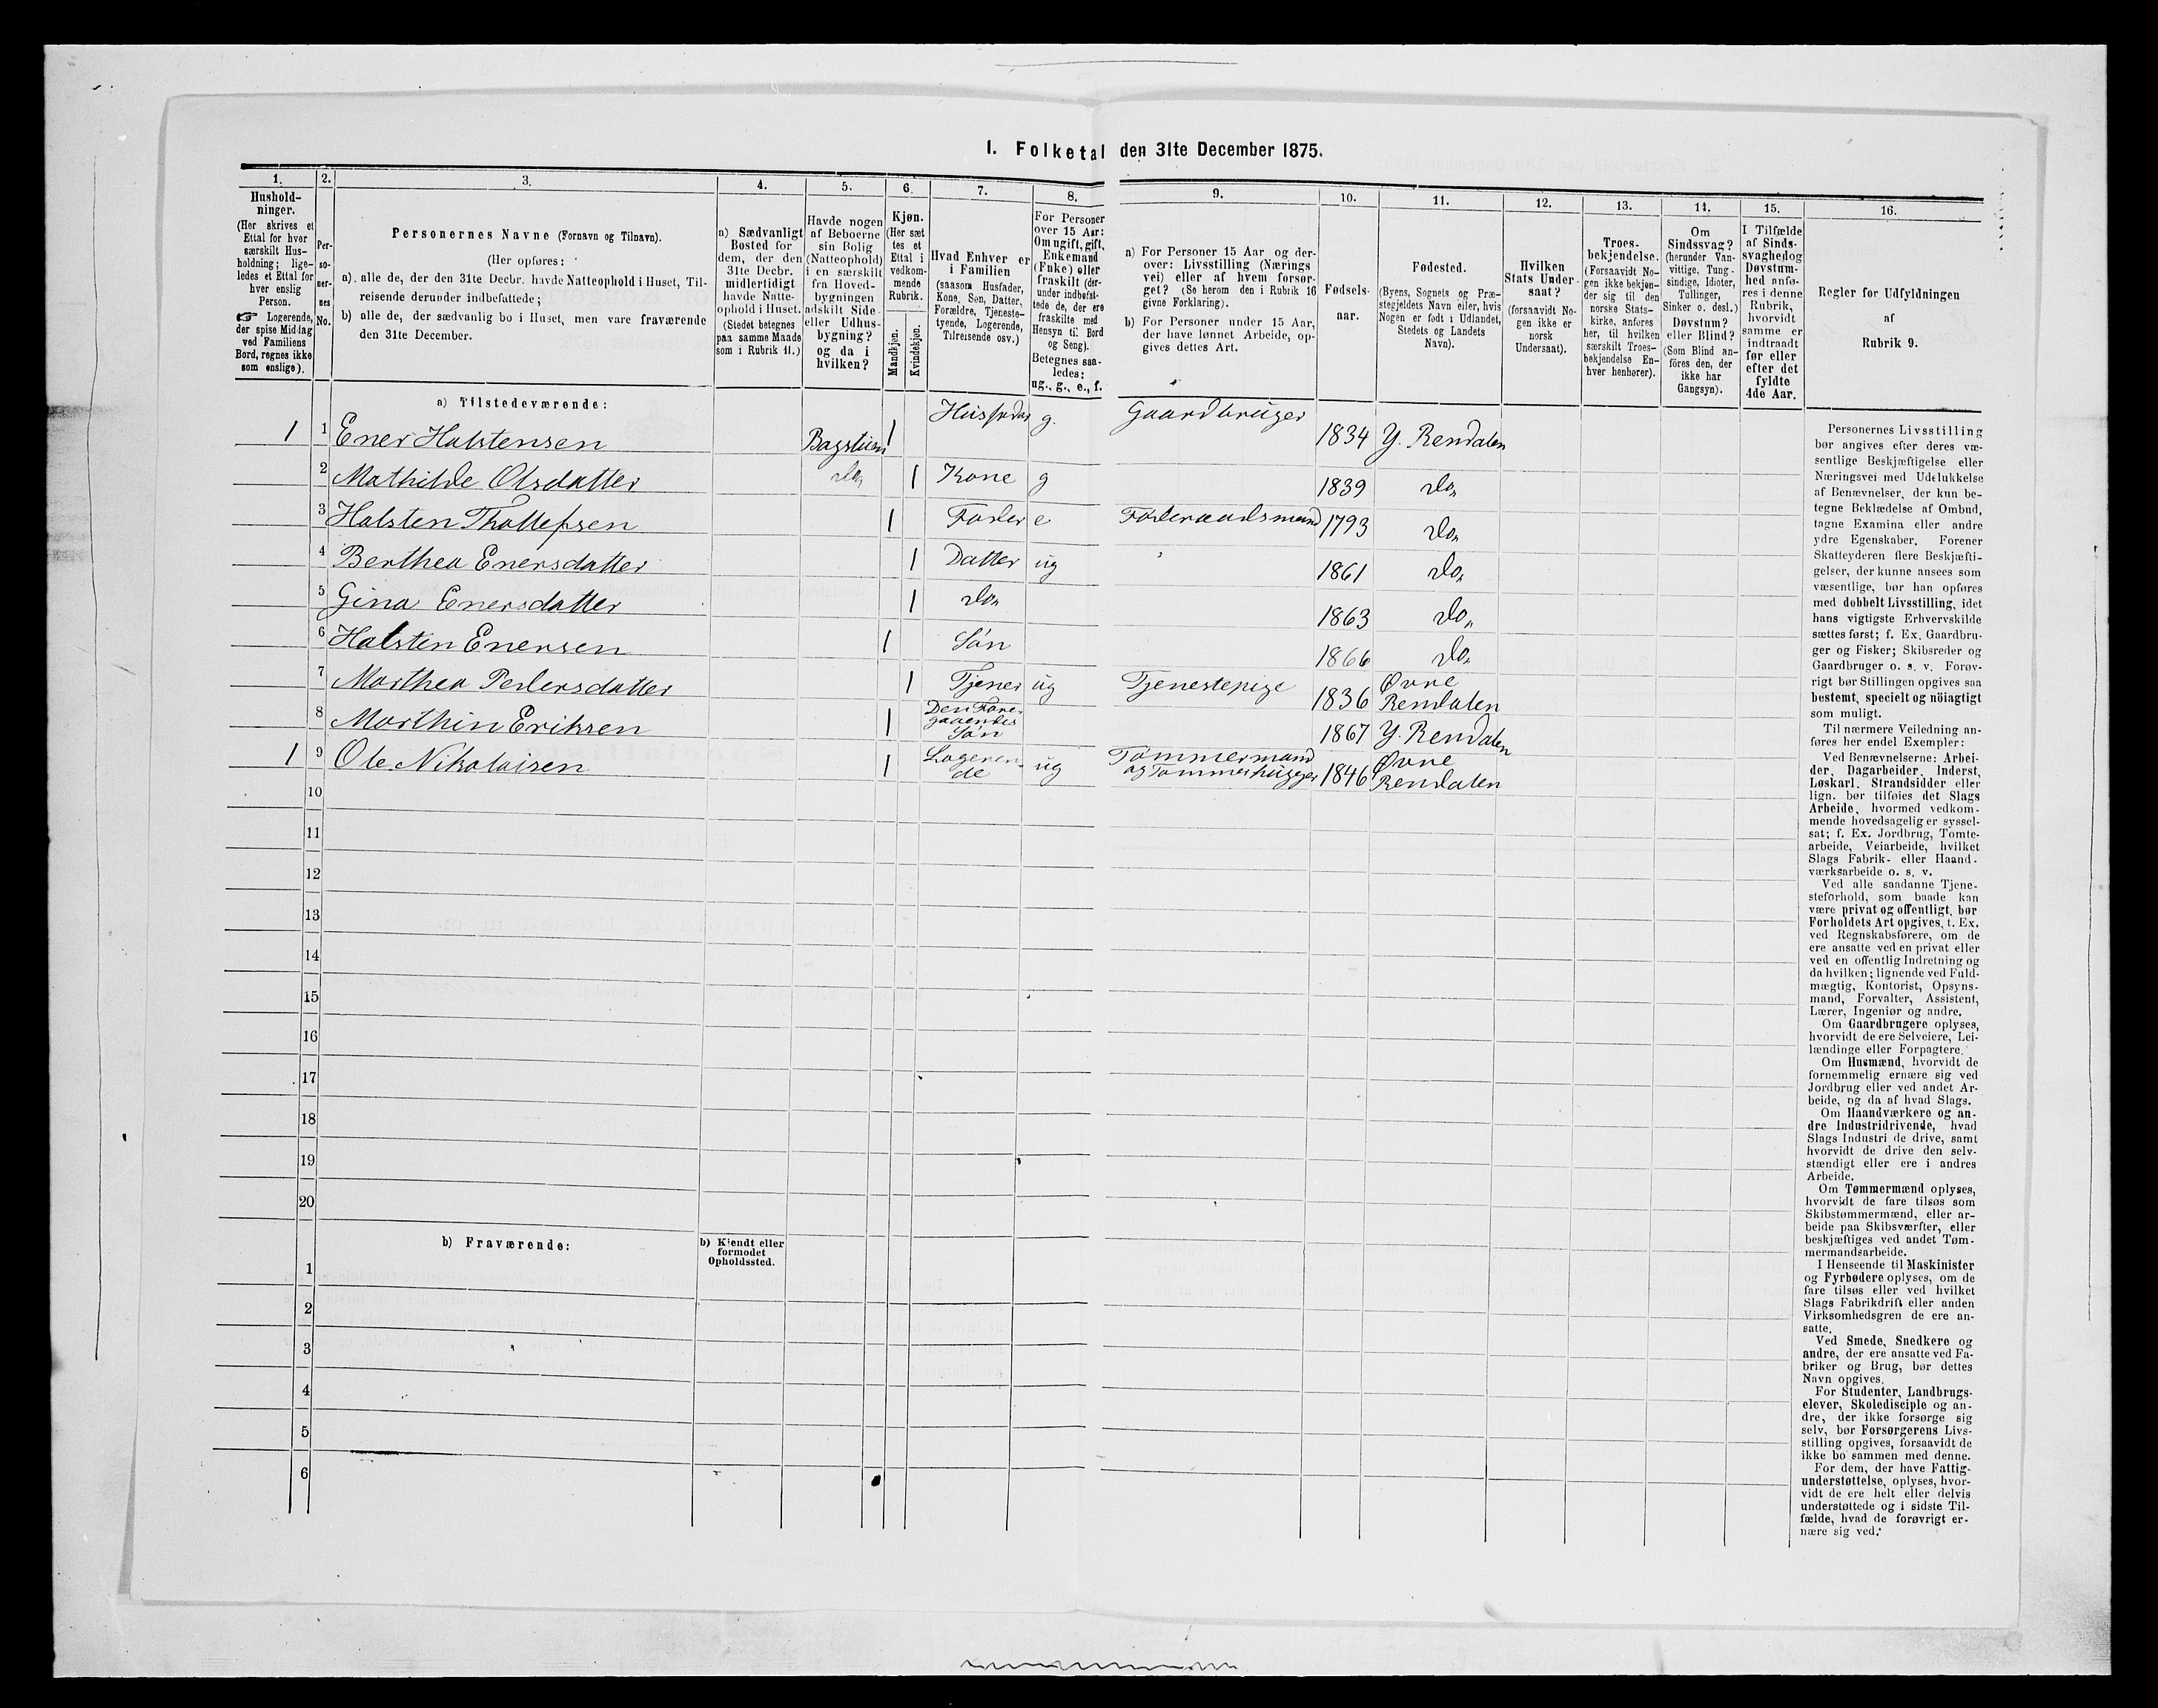 1. Folketal den 31te December 1875.
1. 2. 3. 4. 5. 6. 7. 8. 9. 10. 11. 12. 13. 14. 15. 16.
Hushold-
ninger.
(Her skrives et
Ettal for hver
særskilt Hus-
holdning; lige-
ledes et Ettal for
hver enslig
Person.
☞ Logerende,
der spise Middag
ved Familiens
Bord, regnes ikke
som enslige).
Per-
so-
ner-
nes
No.
Personernes Navne (Fornavn og Tilnavn).
(Her opføres:
a) alle de, der den 31te Decbr. havde Natteophold i Huset, Til-
reisende derunder indbefattede;
b) alle de, der sædvanlig bo i Huset, men vare fraværende
den 31te December.
a) Sædvanligt
Bosted for
dem, der den
31te Decbr.
midlertidigt
havde Natte-
ophold i Huset.
(Stedet betegnes
paa samme Maade
som i Rubrik 11.)
Havde nogen
af Beboerne
sin Bolig
(Natteophold)
i en særskilt
fra Hoved-
bygningen
adskilt Side-
eller Udhus-
bygning?
og da i
hvilken?
Kjøn.
(Her sæt-
tes et
Ettal i
vedkom-
mende
Rubrik.
Mandkjøn.
Kvindekjøn.
Hvad Enhver er
i Familien
(saasom Husfader,
Kone, Søn, Datter,
Forældre, Tjeneste-
tyende, Logerende,
Tilreisende osv.)
For Personer
over 15 Aar:
Om ugift, gift,
Enkemand
(Enke) eller
fraskilt (der-
under indbefat-
tede de, der ere
fraskilte med
Hensyn til Bord
og Seng).
Betegnes saa-
ledes:
ug., g., e., f.
a) For Personer 15 Aar og der-
over: Livsstilling (Nærings
vei) eller af hvem forsør-
get? (Se herom den i Rubrik 16
givne Forklaring).
b) For Personer under 15 Aar,
der have lønnet Arbeide, op-
gives dettes Art.
Fødsels-
aar.
Fødested.
(Byens, Sognets og Præ-
stegjeldets Navn eller, hvis
Nogen er født i Udlandet,
Stedets og Landets
Navn).
Hvilken
Stats Under-
saat?
(forsaavidt No-
gen ikke er
norsk
Undersaat).
Troes-
bekjendelse.
(Forsaavidt No-
gen ikke bekjen-
der sig til den
norske Stats-
kirke, anføres
her, til hvilken
særskilt Troes-
bekjendelse En-
hver henhører).
Om
Sindssvag?
(herunder Van-
vittige, Tung-
sindige, Idioter,
Tullinger,
Sinker o. desl.)
Døvstum?
eller Blind?
(Som Blind an-
føres den, der
ikke har
Gangsyn).
I Tilfælde
af Sinds-
svaghed og
Døvstum-
hed anfø-
res i denne
Rubrik,
hvorvidt
samme er
indtraadt
før eller
efter det
fyldte
4de Aar.
Regler for Udfyldningen
af
Rubrik 9.
a) Tilstedeværende:
1 1 Ener Halstensen Bagstuen 1 Husfader g. Gaardbruger 1834 Y. Rendalen
2 Mathilde Olsdatter Do. 1 Kone g 1839 Do.
3 Halsten Thollefsen 1 Fader e Föderaadsmand 1793 Do.
4 Berthea Enersdatter 1 Datter ug 1861 Do.
5 Gina Enersdatter 1 Do. 1863 Do.
6 Halsten Enersen 1 Sön 1866 Do.
7 Marthea Pedersdatter 1 Tjener ug Tjenestepige 1836 Øvre Rendalen
8 Marthin Eriksen 1 Den Fore-
gaaendes
Sön 1867 Y. Rendalen
1 9 Ole Nikolaisen 1 Logeren-
de ug Tömmermand
og Tömmerhugger 1846 Øvre Rendalen
10
11
12
13
14
15
16
17
18
19
20
b) Fraværende:
b) Kjendt eller
formodet
Opholdssted.
1
2
3
4
5
6
Personernes Livsstilling
bør angives efter deres væ-
sentlige Beskjæftigelse eller
Næringsvei med Udelukkelse
af Benævnelser, der kun be-
tegne Beklædelse af Ombud,
tagne Examina eller andre
ydre Egenskaber. Forener
Skatteyderen flere Beskjæfti-
gelser, der kunne ansees som
væsentlige, bør han opføres
med dobbelt Livsstilling, idet
hans vigtigste Erhvervskilde
sættes først; f. Ex. Gaardbru-
ger og Fisker; Skibsreder og
Gaardbruger o. s. v. Forøv-
rigt bør Stillingen opgives saa
bestemt, specielt og nöiagtigt
som muligt.
Til nærmere Veiledning an-
føres her endel Exempler:
Ved Benævnelserne: Arbei-
der, Dagarbeider, Inderst,
Løskarl, Strandsidder eller
lign. bør tilføies det Slags
Arbeide, hvormed vedkom-
mende hovedsagelig er syssel-
sat; f. Ex. Jordbrug, Tomte-
arbeide, Veiarbeide, hvilket
Slags Fabrik- eller Haand-
værksarbeide o. s. v.
Ved alle saadanne Tjene-
steforhold, som baade kan
være privat og offentligt, bør
Forholdets Art opgives, t. Ex.
ved Regnskabsførere, om de
ere ansatte ved en privat eller
ved en offentlig Indretning og
da hvilken; lignende ved Fuld-
mægtig, Kontorist, Opsyns-
mand, Forvalter, Assistent,
Lærer, Ingeniør og andre.
Om Gaardbrugere oplyses,
hvorvidt de ere Selveiere, Lei-
lændinge eller Forpagtere.
Om Husmænd, hvorvidt de
fornemmelig ernære sig ved
Jordbrug eller ved andet Ar-
beide, og da af hvad Slags.
Om Haandværkere og an-
dre Industridrivende, hvad
Slags Industri de drive, samt
hvorvidt de drive den selv-
stændigt eller ere i andres
Arbeide.
Om Tømmermænd oplyses,
hvorvidt de fare tilsøs som
Skibstømmermænd, eller ar-
beide paa Skibsværfter, eller
beskjæftiges ved andet Tøm-
mermandsarbeide.
I Henseende til Maskinister
og Fyrbødere oplyses, om de
fare tilsøs eller ved hvilket
Slags Fabrikdrift eller anden
Virksomhedsgren de ere an-
satte.
Ved Smede, Snedkere og
andre, der ere ansatte ved Fa-
briker og Brug, bør dettes
Navn opgives.
For Studenter, Landbrugs-
elever, Skoledisciple og an-
dre, der ikke forsørge sig
selv, bør Forsørgerens Livs-
stilling opgives, forsaavidt de
ikke bo sammen med denne.
For dem, der have Fattig-
understøttelse, oplyses, hvor-
vidt de ere helt eller delvis
understøttede og i sidste Til-
fælde, hvad de forøvrigt er-
nære sig ved.